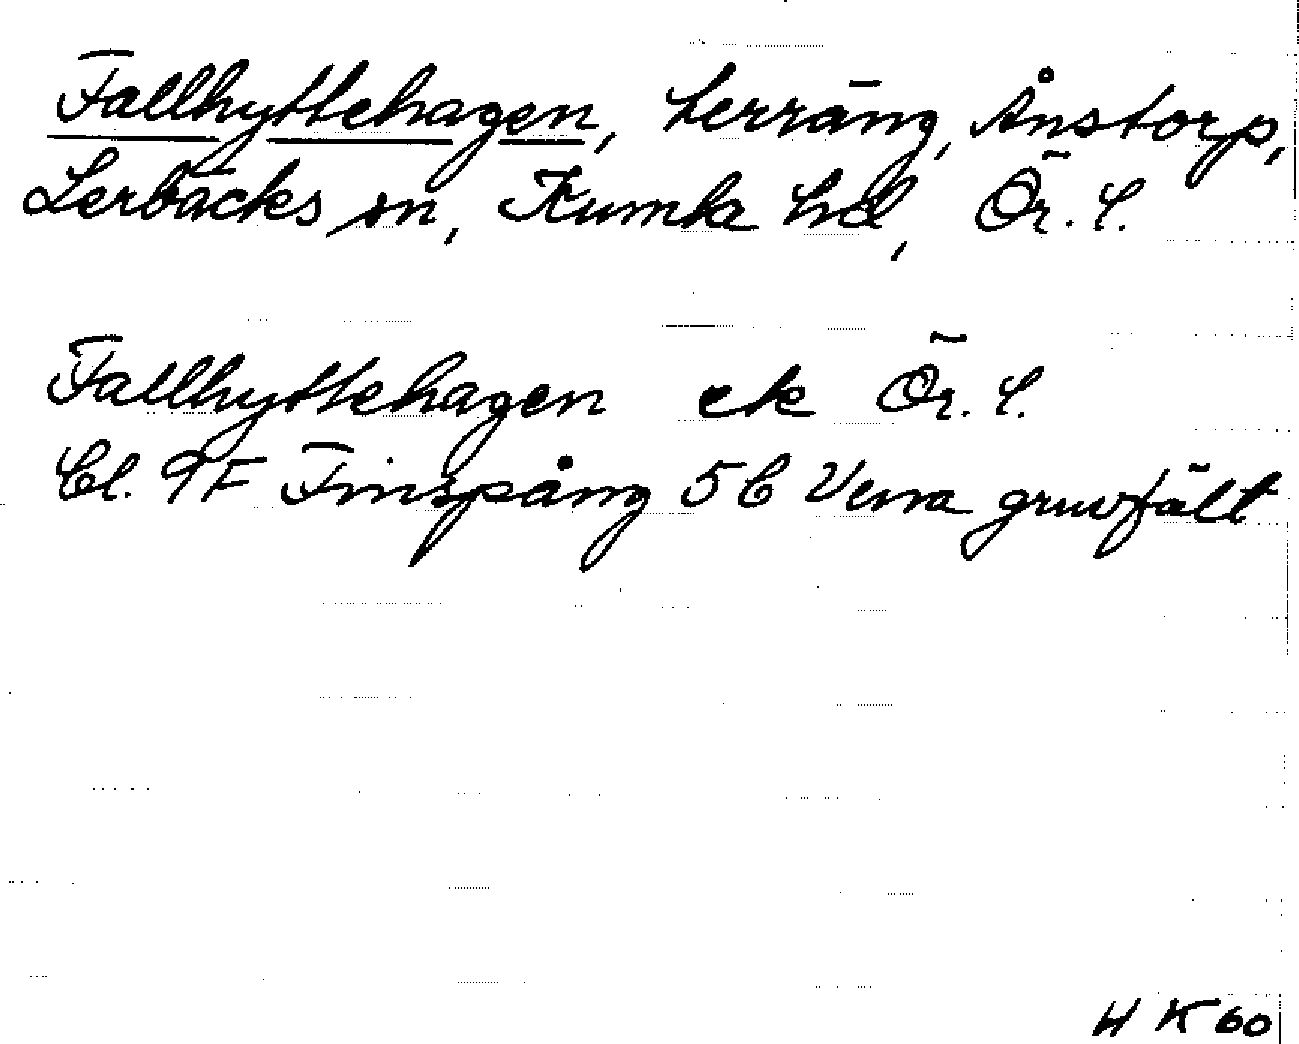 Fallhyttehagen, terräng, Ånstorp,
Lerbäcks sn, Kumla hd, Ör. l.
Fallhyttehagen ek Ör. l.
Bl. 9F Finspång 5b Vena gruvfält
H K 60